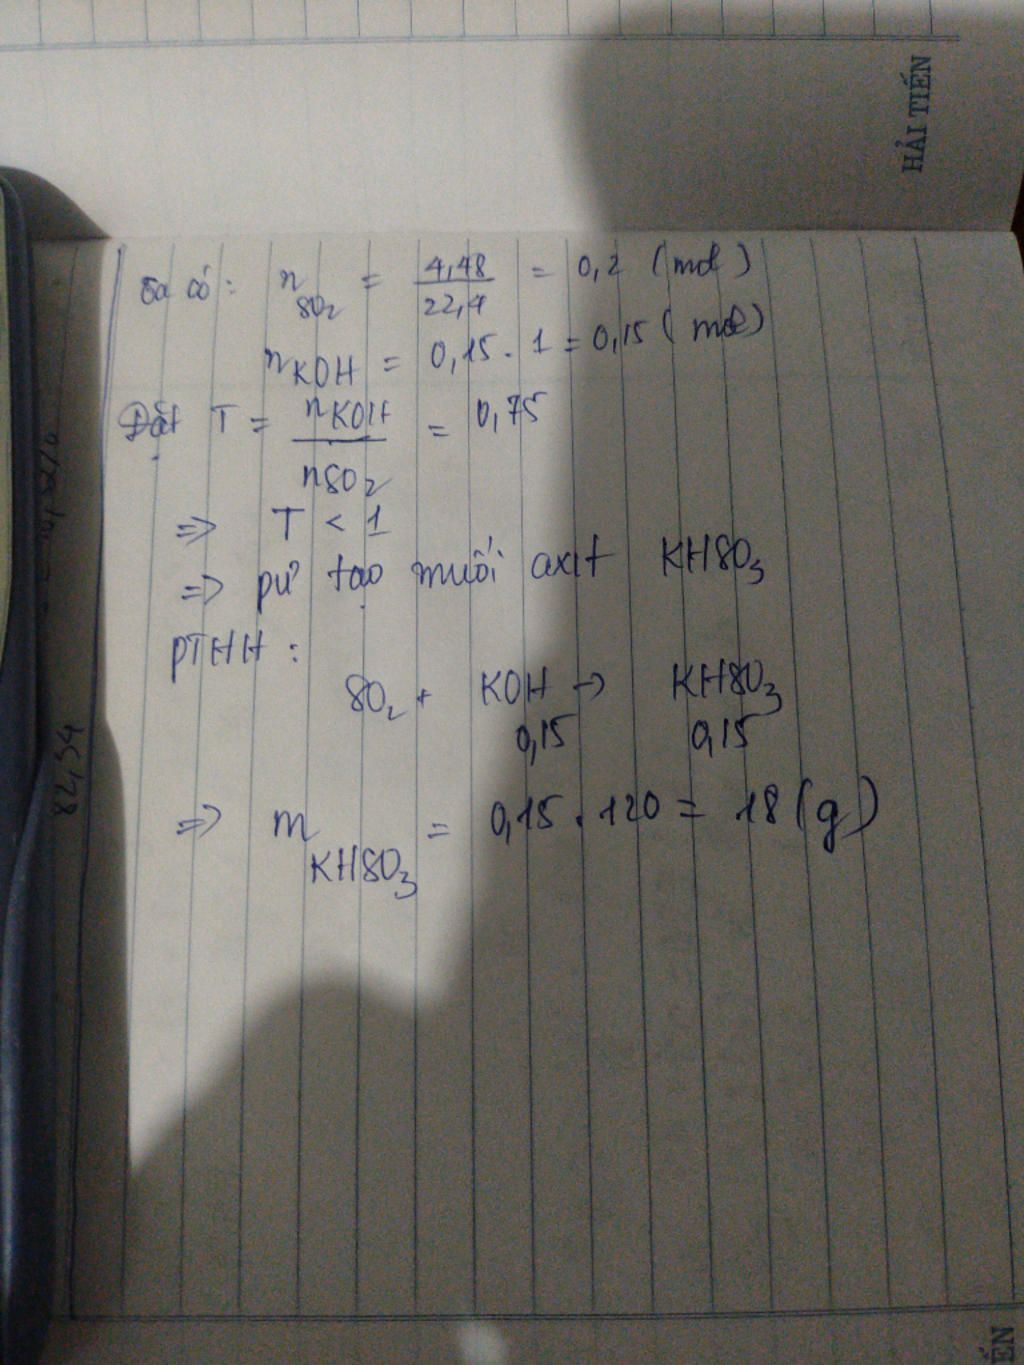 HẢI TIẾN
Ta có: n SO2 = 4,48 / 22,4 = 0,2 (mol)
nKOH = 0,15 . 1 = 0,15 (mol)
Đặt T = nKOH / nSO2 = 0,75
=> T < 1
=> pứ tạo muối axit KHSO3
PTHH :
SO2 + KOH -> KHSO3
0,15 0,15
=> m KHSO3 = 0,15 . 120 = 18 (g)
82,34
ẾN